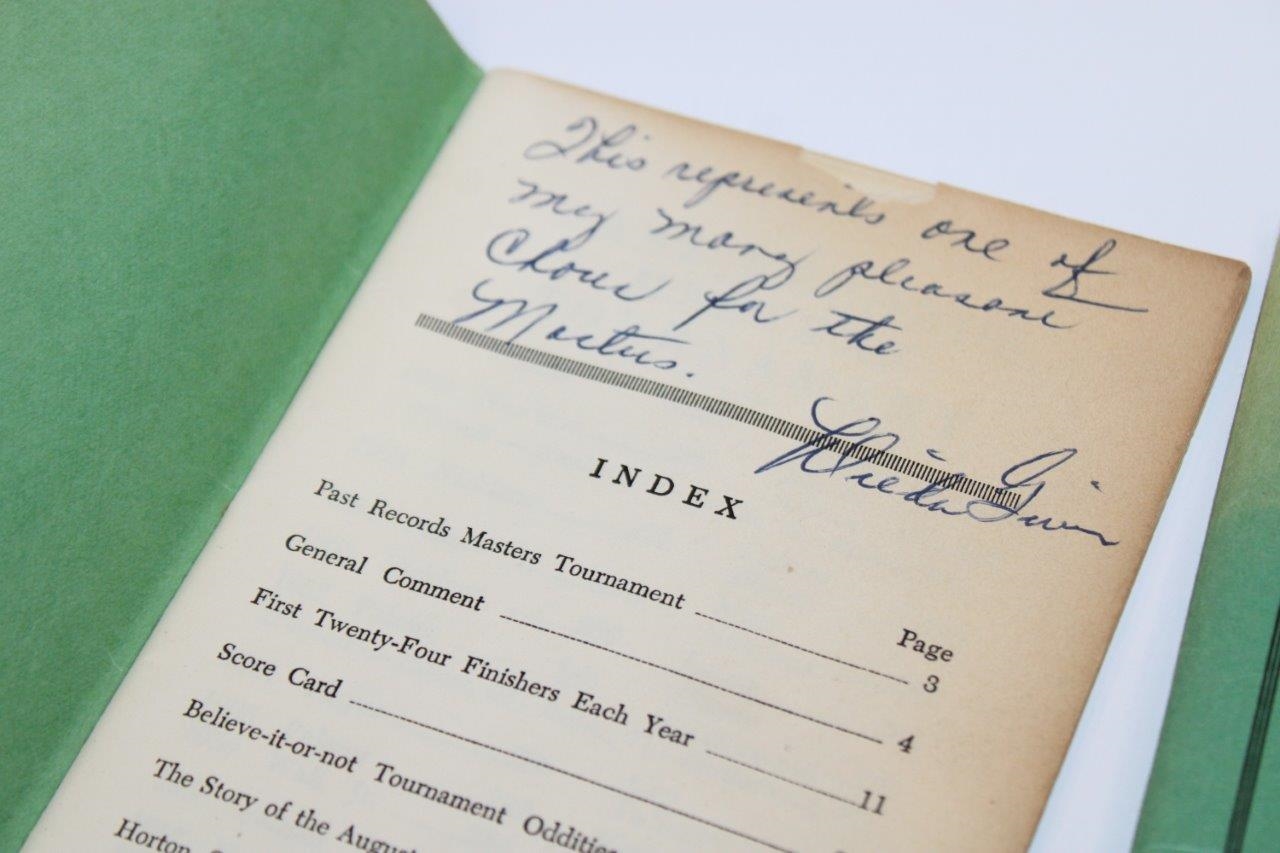 This represents one of
my many pleasant
Chores for the
Masters.
Wilda Gwin
INDEX
Page
Past Records Masters Tournament 3
General Comment 4
First Twenty-Four Finishers Each Year 11
Score Card
Believe-it-or-not Tournament
The Story of the
Horton